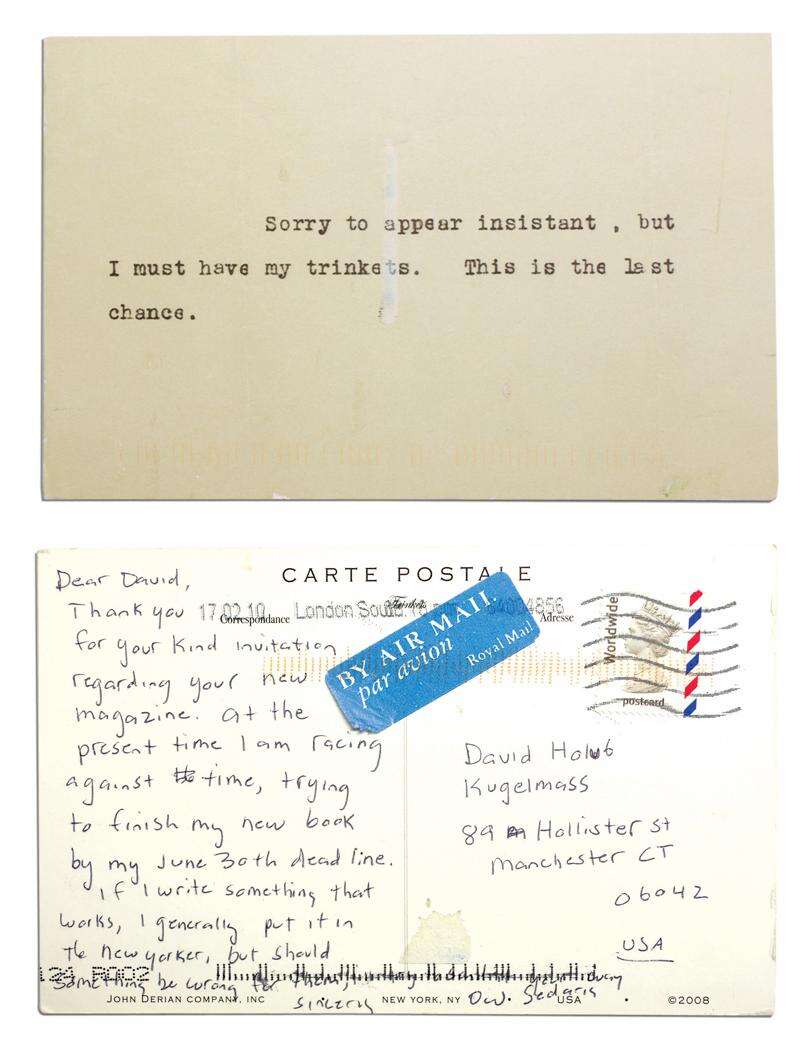 Sorry to appear insistant , but
I must have my trinkets. This is the last
chance.
CARTE POSTALE
Correspondance
Trinkets
Adresse
17.02.10 London South
BY AIR MAIL
par avion
Royal Mail
Worldwide
postcard
Dear David,
Thank you
for your kind invitation
regarding your new
magazine. At the
present time I am racing
against time, trying
to finish my new book
by my June 30th deadline.
If I write something that
works, I generally put it in
the new yorker, but should
something be wrong for them,
sincerely
D.W. Sedaris
David Holub
Kugelmass
89 Hollister St
Manchester CT
06042
USA
JOHN DERIAN COMPANY, INC NEW YORK, NY USA ©2008